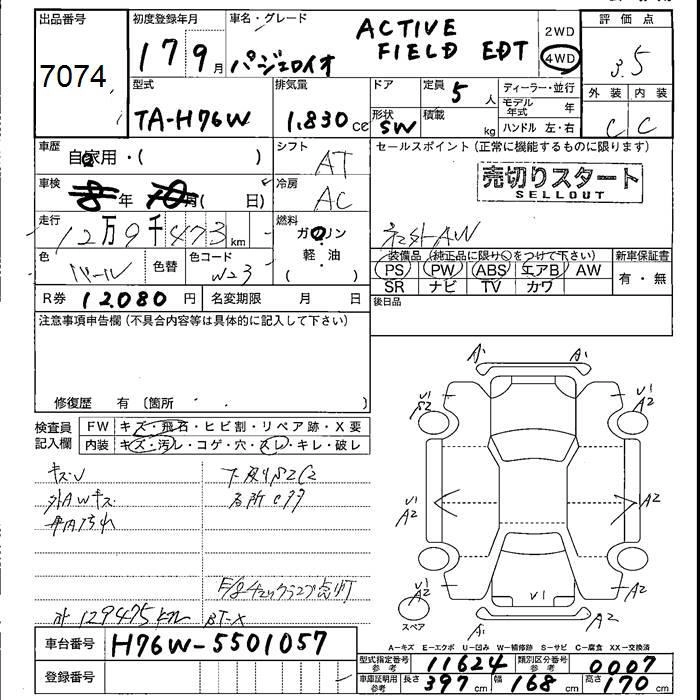 出品番号 初度登録年月 車名・グレード ACTIVE 2WD 評価点
7074 17 9月 パジェロイオ FIELD EDT 4WD 3.5
型式 排気量 ドア 定員 5人 ディーラー・並行 外装 内装
TA-H76W 1,830cc 形状 SW 積載 kg モデル年式 年 C C
ハンドル 左・右
車歴 自家用・( ) シフト AT セールスポイント(正常に機能するものに限ります)
車検 年 月( 日) 冷房 AC 売切りスタート
SELLOUT
走行 12万9千473km 燃料 ガソリン 社外AW
軽・油 装備品(純正品に限り○をつけて下さい) 新車保証書
色 パール 色替 色コード W23 ( ) PS PW ABS エアB AW 有・無
SR ナビ TV カワ
R券 12,080円 名変期限 月 日 後日品
注意事項申告欄(不具合内容等は具体的に記入して下さい)
修復歴 有〔箇所
検査員 FW キズ・飛石・ヒビ割・リペア跡・X要
記入欄 内装 キズ・汚レ・コゲ・穴・スレ・キレ・破レ
外AWキズ
内汚れ
129475
BT-X
A1 A1
U1 S2
U1 A2
U1 A2
A2
U1 A2
A2
U1
A1 A2
スペア
車台番号 H76W-5501057
登録番号
A-キズ E-エクボ U-凹み W-補修跡 S-サビ C-腐食 XX-交換済
型式指定番号 参考 11624 類別区分番号 参考 0007
車庫証明用 参考 長さ 397cm 幅 168cm 高さ 170cm